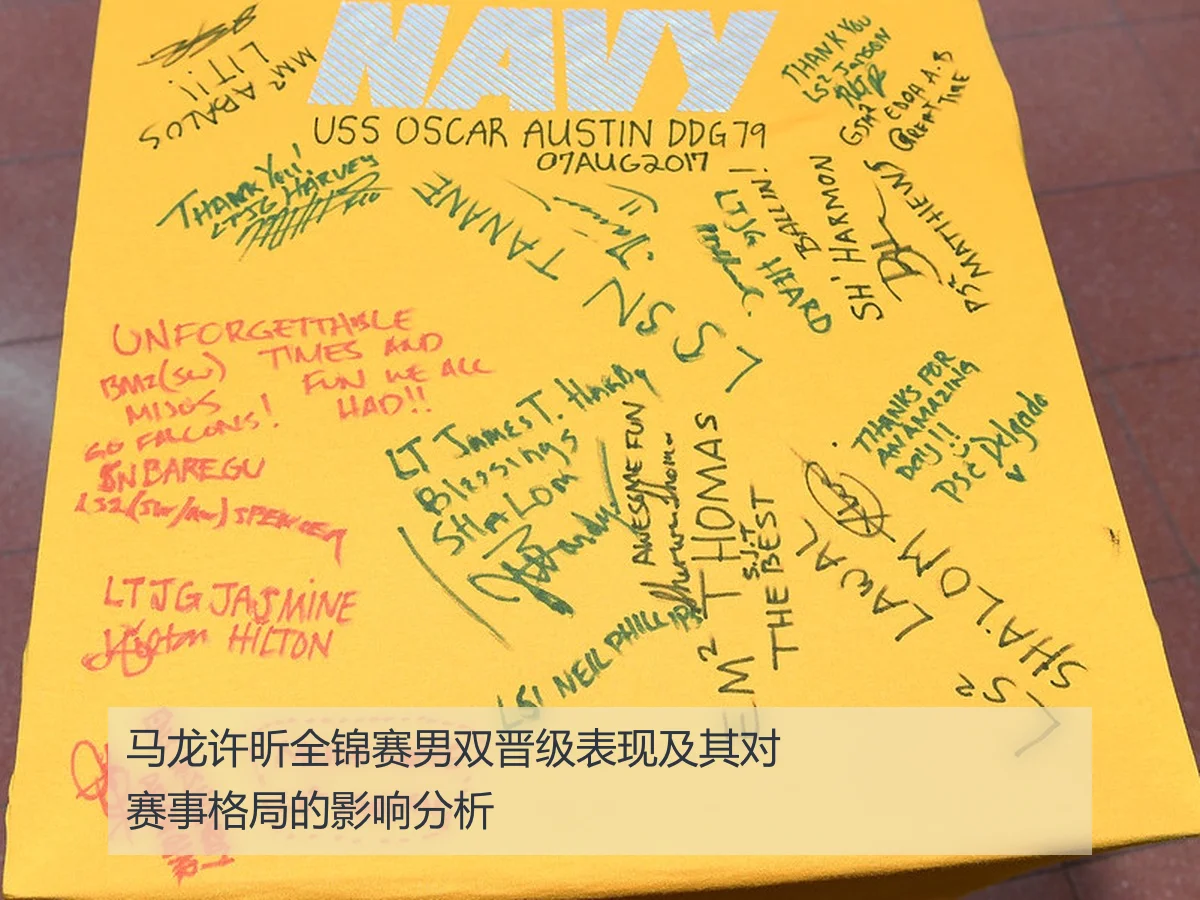 NAVY
USS OSCAR AUSTIN DDG79
07AUG2017
MM2 ABALOS
LIT!!
THANK YOU
LS2 JADSON
GREAT TIME
THANK YOU!
LTJG HARVEY
TANANE
LS SN
LTJG HEARD
BALLIN!
SH' HARMON
PS2 MATHIEWS
UNFORGETTABLE
TIMES AND
FUN WE ALL
HAD!!
BM2(SW)
MIJOS
GO FALCONS!
SN BAREGU
LS2(SW/AW) SPENCER
LT James T. Hardy
Blessings
SHALOM
Hardy
AWESOME FUN
THANKS FOR
AN AMAZING
Day!!
PSC Delgado
EM2 THOMAS
S.J.T
THE BEST
LAWAL
LS2 SHALOM
LTJG JASMINE
HILTON
LS1 NEIL PHILLIPS
马龙许昕全锦赛男双晋级表现及其对
赛事格局的影响分析